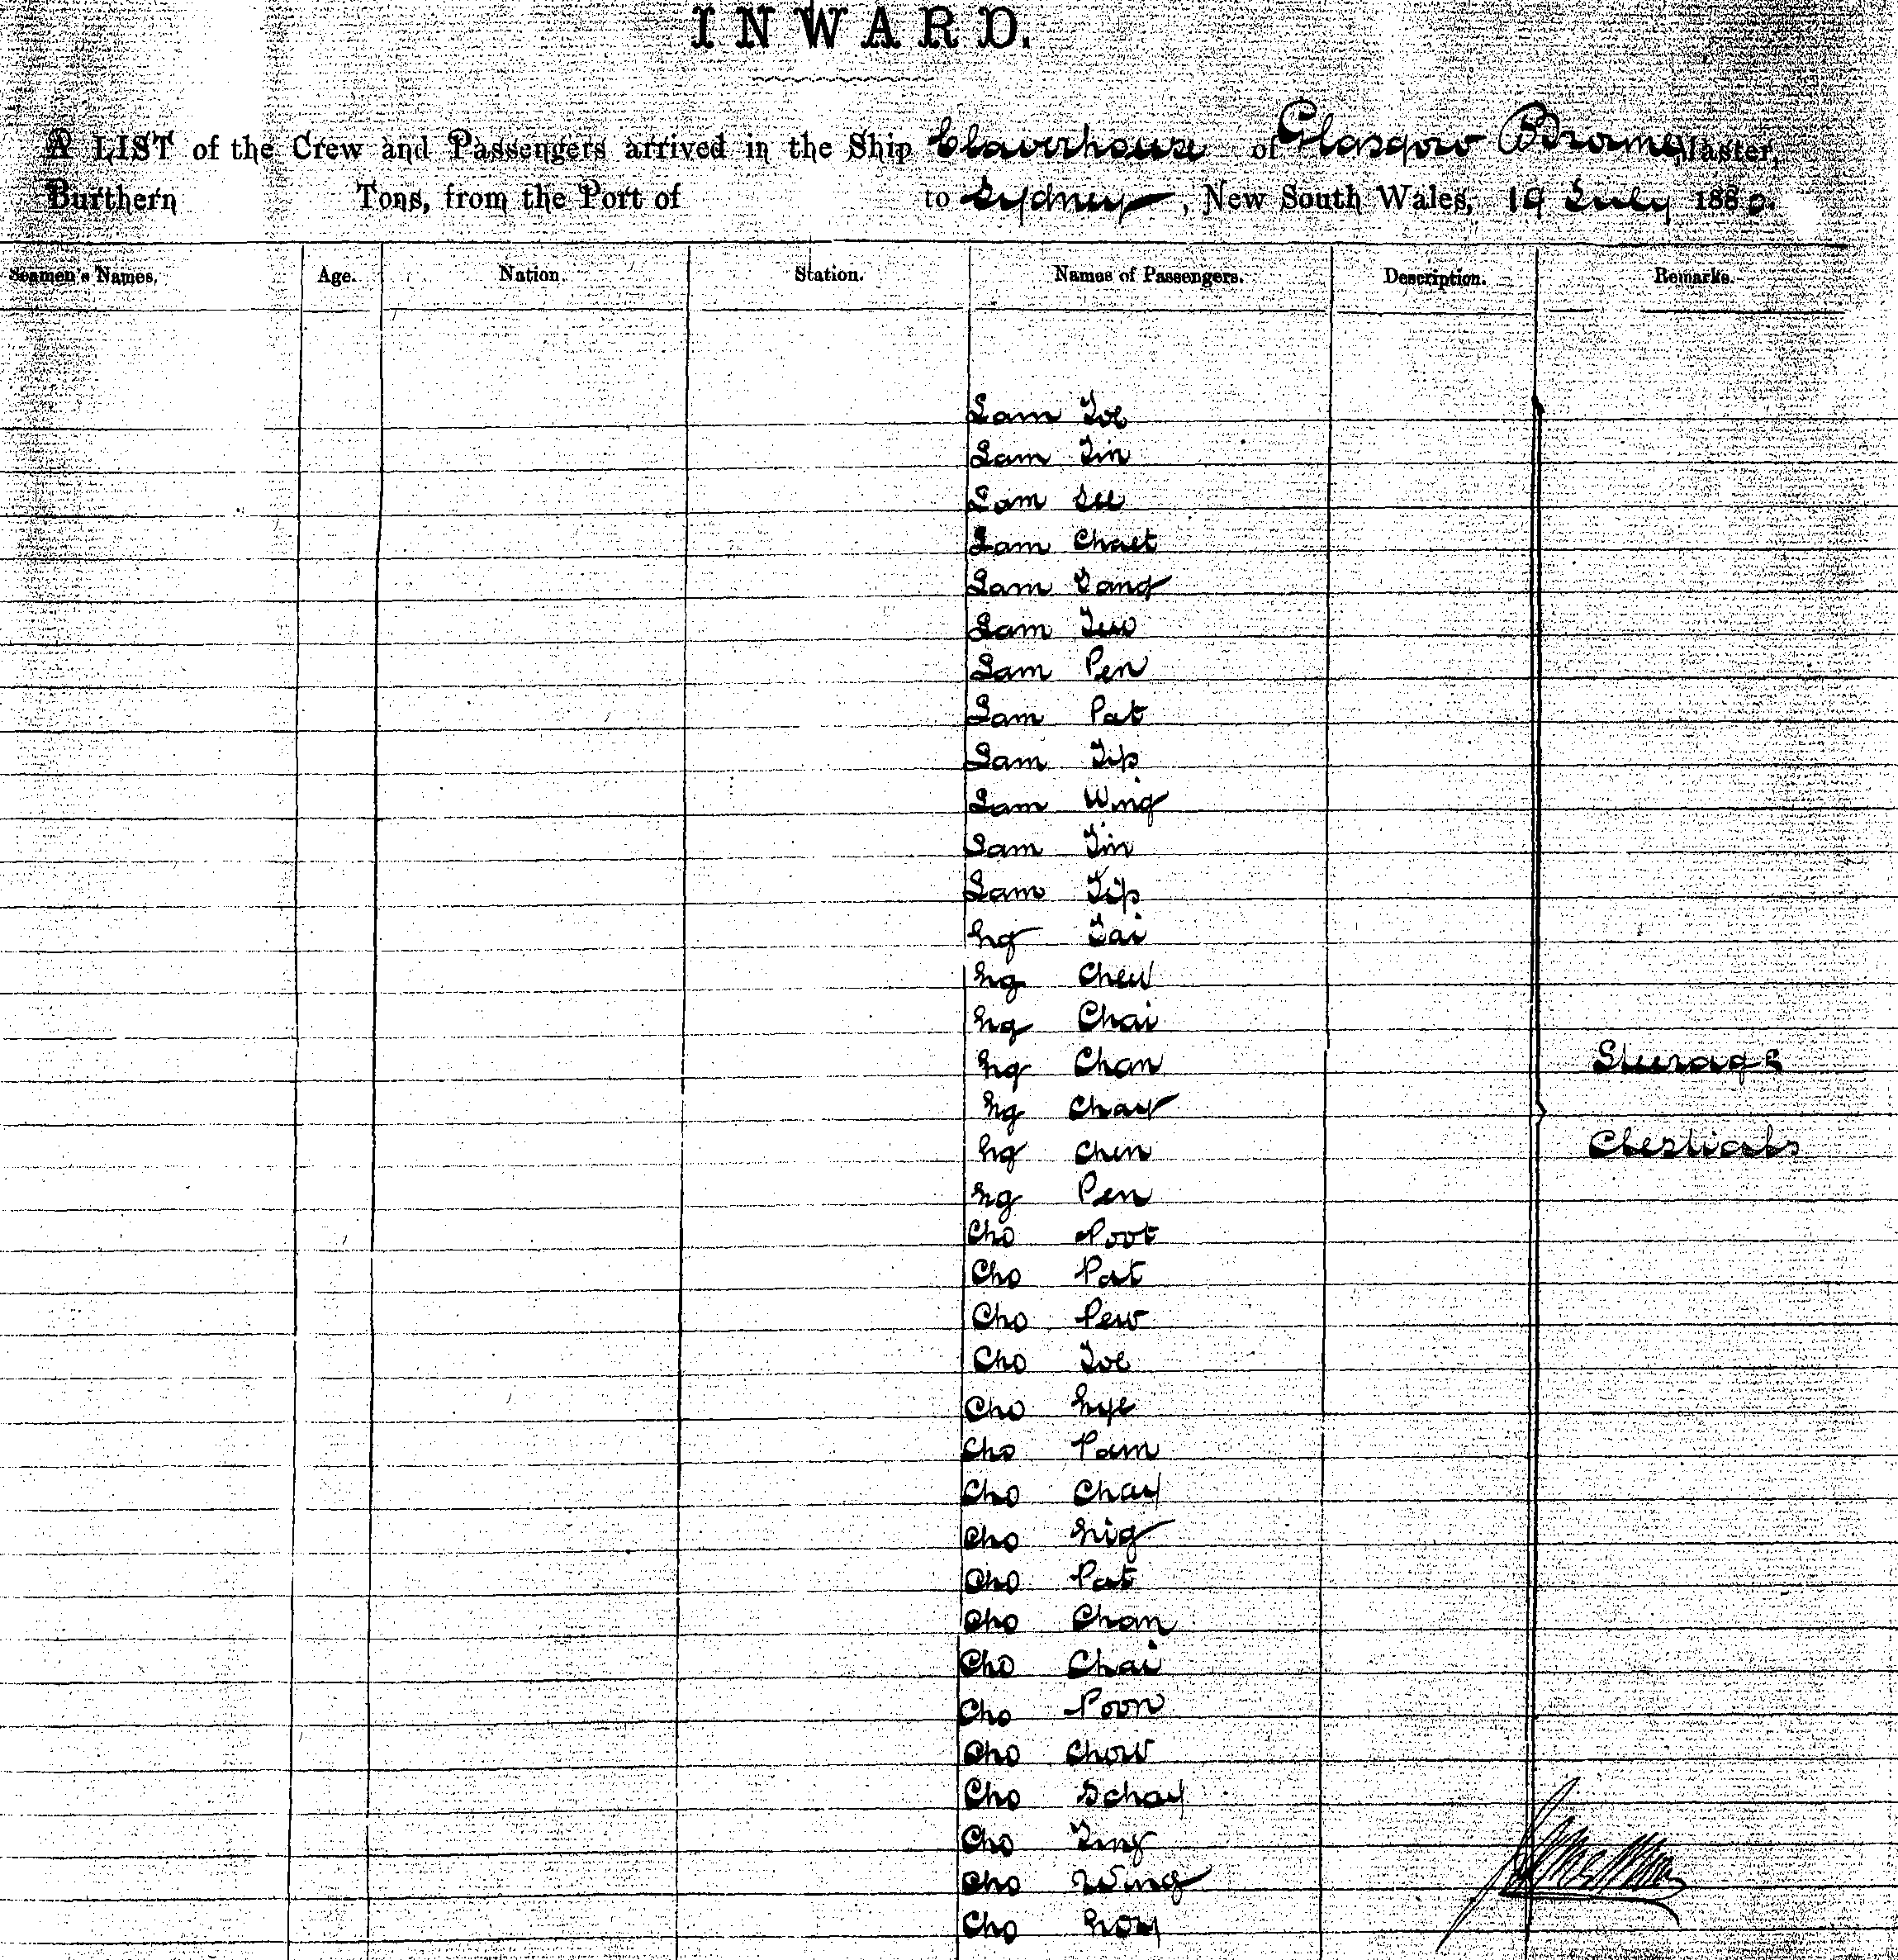 INWARD.
A LIST of the Crew and Passengers arrived in the Ship Claverhouse of Glasgow Browne Master,
Burthern Tons, from the Port of to Sydney, New South Wales, 19 July 1880.
Seamen's Names. Age. Nation. Station. Names of Passengers. Description. Remarks.
Lam Toe
Lam Tin
Lam See
Lam
Lam
Lam
Lam Pen
Lam Pat
Lam Tip
Lam Wing
Lam Tin
Lam Tip
Ng Tai
Ng Chew
Ng Chai
Ng Chan Steerage
Ng Chay
Ng Chen
Ng Pen
Cho Poot
Cho Pat
Cho Pew
Cho Toe
Cho Nye
Cho Pam
Cho Chay
Cho Nig
Cho Pat
Cho Chan
Cho Chai
Cho Poon
Cho Chow
Cho Schay
Cho Ting
Cho Wing
Cho Noy